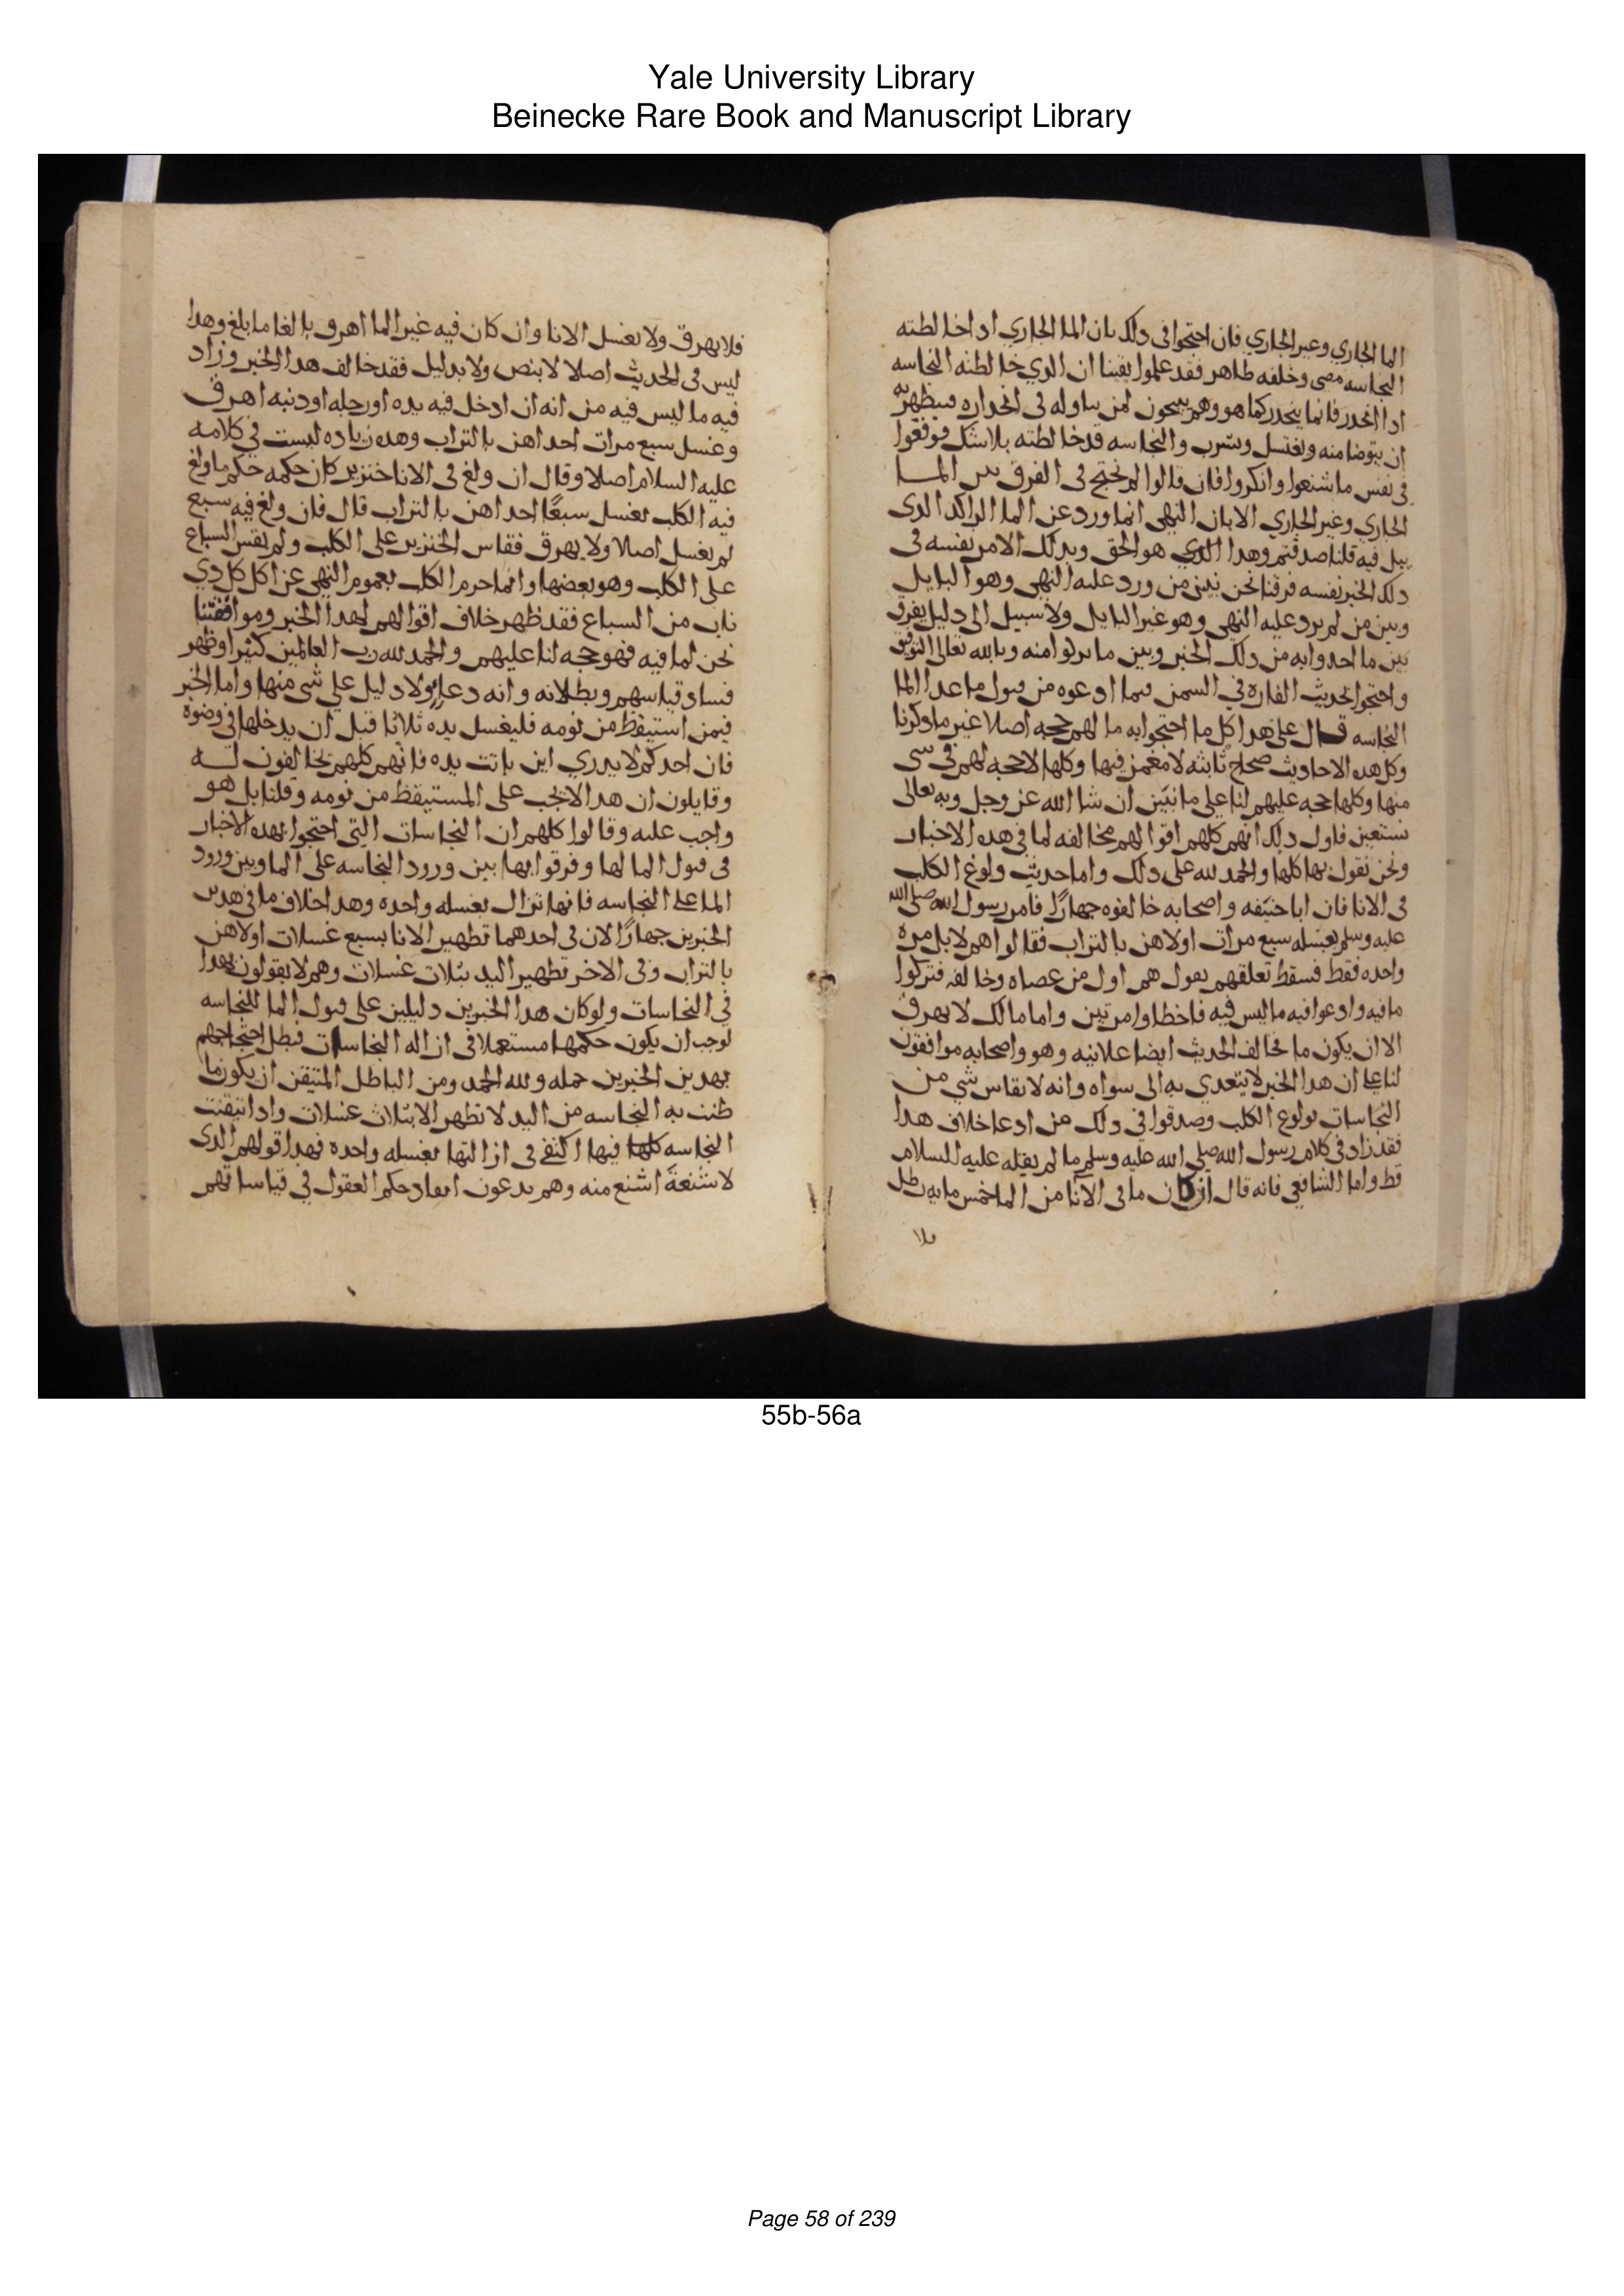 Yale University Library
Beinecke Rare Book and Manuscript Library
الما الجاري وغير الجاري فان احتجوا فى دلك بان الما الجاري ادا خالطته
النجاسه مضى وخلفه طاهر فقد علموا يقينا ان الدي خالطته النجاسه
ادا انحدر فانما ينحدر كما هو وهم يبيحون لمن تناوله فى انحداره فيتطهر به
ان يتوضا منه ويغتسل ويشرب والنجاسه قد خالطته بلا شك فوقعوا
فى نفس ما شنعوا وانكروا فان قالوا لم نحتج فى الفرق بين المـــا
الجاري وغير الجاري الا بان النهى انما ورد عن الما الراكد الدى
يبل فيه قلنا صدقتم وهدا الدي هو الحق وبدلك الامر نفسه فى
دلك الخبر نفسه فرقنا نحن بين من ورد عليه النهى وهو البايل
وبين من لم يرد عليه النهى وهو غير البايل ولا سبيل الى دليل يفرق
بين ما احدوا به من دلك الخبر وبين ما تركوا منه وبالله تعالى التوفيق
واحتجوا بحديث الفاره في السمن فيما ادعوه من قبول ما عدا الما
النجاسه قـــال على هدا كل ما احتجوا به ما لهم حجه اصلا غير ما دكرنا
وكل هده الاحاديث صحاح ثابته لا مغمز فيها وكلها لا حجه لهم في شى
منها وكلها حجه عليهم لنا على ما نبين ان شا الله عز وجل وبه تعالى
نستعين فاول دلك انهم كلهم اقوالهم مخالفه لما في هده الاخبار
ونحن نقول بها كلها والحمد لله على دلك واما حديث ولوغ الكلب
فى الانا فان ابا حنيفه واصحابه خالفوه جهارًا فامر رسول الله صلى الله
عليه وسلم بغسله سبع مرات اولاهن بالتراب فقالوا هم لا بل مره
واحده فقط فسقط تعلقهم بقول هم اول من عصاه وخالفه فتركوا
ما فيه وادعوا فيه ما ليس فيه فاخطاوا مرتين واما مالك لا يهرق
الا ان يكون ما خالف الحديث ايضا علانيه وهو واصحابه موافقون
لنا على ان هدا الخبر لا يتعدي به الى سواه وانه لا يقاس شي من
النجاسات بولوغ الكلب وصدقوا في دلك من ادعا خلاف هدا
فقد زاد في كلام رسول الله صلى الله عليه وسلم ما لم يقله عليه السلام
قط واما الشافعي فانه قال ان كان ما في الانا من الما خمس مايه رطل
فلا
فلا يهرق ولا يغسل الانا وان كان فيه غير الما اهرق بالغا ما بلغ وهدا
ليس فى الحديث اصلا لا بنص ولا بدليل فقد خالف هدا الخبر وزاد
فيه ما ليس فيه من انه ان ادخل فيه يده او رجله او دنبه اهرق
وغسل سبع مرات احداهن بالتراب وهده زياده ليست في كلامه
عليه السلام اصلا وقال ان ولغ في الانا خنزير كان حكمه حكم ما ولغ
فيه الكلب يغسل سبعًا احداهن بالتراب قال فان ولغ فيه سبع
لم يغسل اصلا ولا يهرق فقاس الخنزير على الكلب ولم يقس السباع
على الكلب وهو بعضها وانما حرم الكلب بعموم النهى عن اكل كل دي
ناب من السباع فقد ظهر خلاف اقوالهم لهدا الخبر وموافقتنا
نحن لما فيه فهو حجه لنا عليهم والحمد لله رب العالمين كثيرا وظهر
فساد قياسهم وبطلانه وانه دعاو ولا دليل على شى منها واما الخبر
فيمن استيقظ من نومه فليغسل يده ثلاثا قبل ان يدخلها في وضوه
فان احدكم لا يدري اين باتت يده فانهم كلهم مخالفون لـــه
وقايلون ان هدا لا يجب على المستيقظ من نومه وقلنا بل هو
واجب عليه وقالوا كلهم ان النجاسات التي احتجوا بهده الاخبار
فى قبول الما لها وفرقوا بها بين ورود النجاسه على الما وبين ورود
الما على النجاسه فانها تزال بغسله واحده وهدا خلاف ما في هدين
الخبرين جهارًا لان فى احدهما تطهير الانا بسبع غسلات اولاهن
بالتراب وفى الاخر تطهير اليد بثلات غسلات وهم لا يقولون بهدا
في النجاسات ولو كان هدا الخبرين دليلين على قبول الما للنجاسه
لوجب ان يكون حكمها مستعملا فى ازاله النجاسات فبطل احتجاجهم
بهدين الخبرين جمله ولله الحمد ومن الباطل المتيقن ان يكون ما
ظنت به النجاسه من اليد لا تطهر الا بثلاث غسلات وادا تيقنت
النجاسه كلها فيها اكتفى فى ازالتها بغسله واحده فهدا قولهم الدى
لا شنعة اشنع منه وهم يدعون ابعاد حكم العقول في قياساتهم
55b-56a
Page 58 of 239